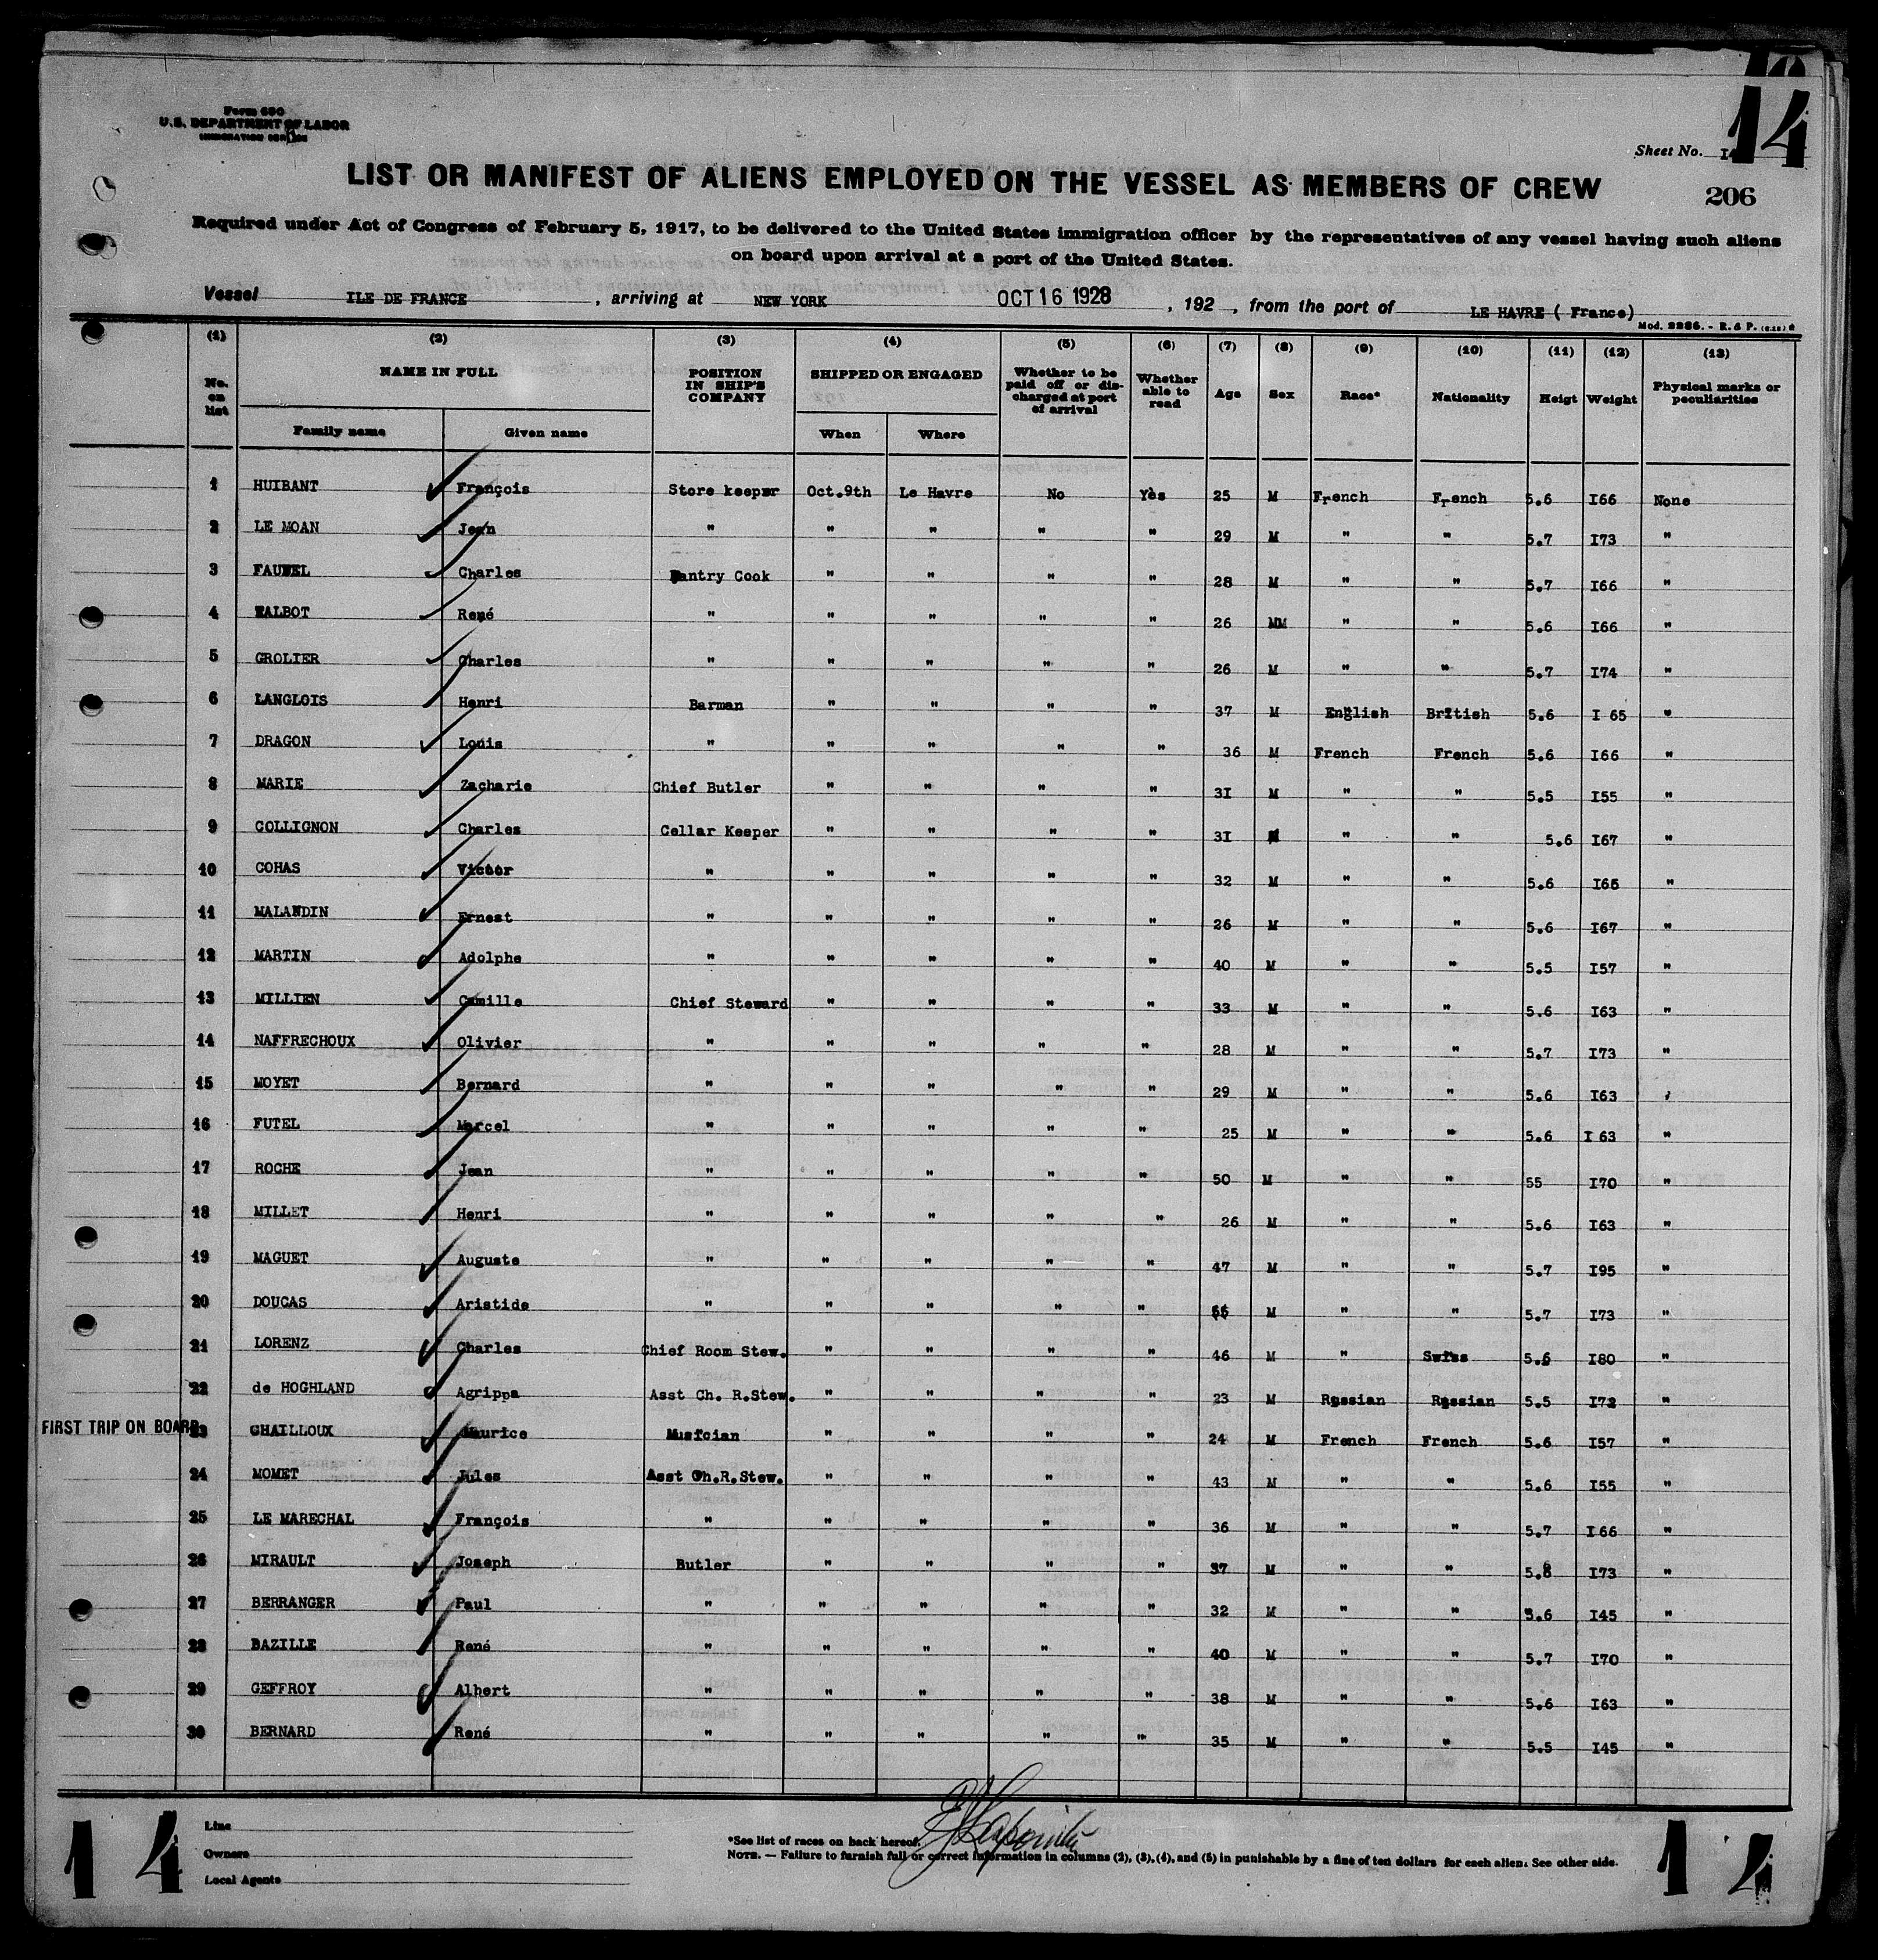 14
Form 680
U.S. DEPARTMENT OF LABOR
IMMIGRATION SERVICE
Sheet No.
LIST OR MANIFEST OF ALIENS EMPLOYED ON THE VESSEL AS MEMBERS OF CREW
206
Required under Act of Congress of February 5, 1917, to be delivered to the United States immigration officer by the representatives of any vessel having such aliens
on board upon arrival at a port of the United States.
Vessel ILE DE FRANCE , arriving at NEW YORK OCT 16 1928 , 192 , from the port of LE HAVRE ( France)
Mod. 2286. - R. & P.
(1) (2) (3) (4) (5) (6) (7) (8) (9) (10) (11) (12) (13)
No. on list NAME IN FULL POSITION IN SHIP'S COMPANY SHIPPED OR ENGAGED Whether to be paid off or discharged at port of arrival Whether able to read Age Sex Race* Nationality Heigt Weight Physical marks or peculiarities
Family name Given name When Where
1 HUIBANT François Store keeper Oct.9th Le Havre No Yès 25 M French French 5.6 I66 None
2 LE MOAN Jean " " " " " 29 M " " 5.7 I73 "
3 FAUWEL Charles Pantry Cook " " " " 28 M " " 5.7 I66 "
4 TALBOT René " " " " " 26 MM " " 5.6 I66 "
5 GROLIER Charles " " " " " 26 M " " 5.7 I74 "
6 LANGLOIS Henri Barman " " " " 37 M English British 5.6 I 65 "
7 DRAGON Louis " " " " " 36 M French French 5.6 I66 "
8 MARIE Zacharie Chief Butler " " " " 3I M " " 5.5 I55 "
9 COLLIGNON Charles Cellar Keeper " " " " 3I M " " 5.6 I67 "
10 COHAS Victor " " " " " 32 M " " 5.6 I65 "
11 MALANDIN Ernest " " " " " 26 M " " 5.6 I67 "
12 MARTIN Adolphe " " " " " 40 M " " 5.5 I57 "
13 MILLIEN Camille Chief Steward " " " " 33 M " " 5.6 I63 "
14 NAFFRECHOUX Olivier " " " " " 28 M " " 5.7 I73 "
15 MOYET Bernard " " " " " 29 M " " 5.6 I63 "
16 FUTEL Marcel " " " " " 25 M " " 5.6 I 63 "
17 ROCHE Jean " " " " " 50 M " " 55 I70 "
18 MILLET Henri " " " " " 26 M " " 5.6 I63 "
19 MAGUET Auguste " " " " " 47 M " " 5.7 I95 "
20 DOUCAS Aristide " " " " " M " " 5.7 I73 "
21 LORENZ Charles Chief Room Stew. " " " " 46 M " Swiss 5.6 I80 "
22 de HOGHLAND Agrippa Asst Ch. R.Stew. " " " " 23 M Russian Russian 5.5 I72 "
FIRST TRIP ON BOARD 23 CHAILLOUX Maurice Musician " " " " 24 M French French 5.6 I57 "
24 MOMET Jules Asst Ch.R.Stew. " " " " 43 M " " 5.6 I55 "
25 LE MARECHAL François " " " " " 36 M " " 5.7 I66 "
26 MIRAULT Joseph Butler " " " " 37 M " " 5.8 I73 "
27 BERRANGER Paul " " " " " 32 M " " 5.6 I45 "
28 BAZILLE René " " " " " 40 M " " 5.7 I70 "
29 GEFFROY Albert " " " " " 38 M " " 5.6 I63 "
30 BERNARD René " " " " " 35 M " " 5.5 I45 "
14
Line
Owners
Local Agents
*See list of races on back hereof.
NOTE. — Failure to furnish full or correct information in columns (2), (3), (4), and (5) in punishable by a fine of ten dollars for each alien. See other side.
14